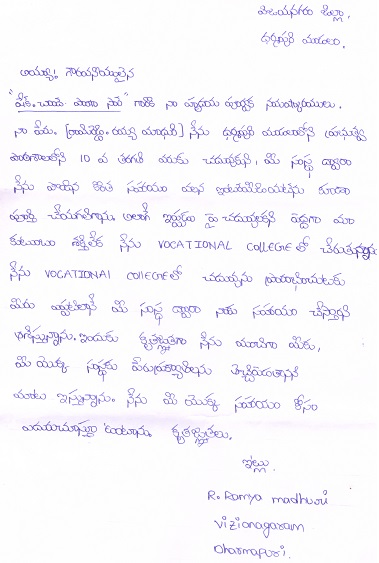 విజయనగరం జిల్లా,
ధర్మపురి మండలం.
అయ్యా! గౌరవనీయులైన
గారికి నా హృదయ పూర్వక నమస్కారములు.
నా పేరు. రమ్య మాధురి నేను ధర్మపురి మండలంలోని ప్రభుత్వ
పాఠశాలలోని 10 వ తరగతి వరకు చదువుకుని, మీ సంస్థ ద్వారా
నేను పొందిన కొంత సహాయం వలన ఇంటర్మీడియట్‌ను కూడా
పూర్తి చేయగలిగాను. అలాగే ఇప్పుడు పై చదువులకు పెద్దగా మా
కుటుంబ శక్తిలేక నేను VOCATIONAL COLLEGE లో చేరుతున్నాను
నేను VOCATIONAL COLLEGE లో చదువును ప్రారంభించుటకు
మీరు ఎప్పటిలాగే మీ సంస్థ ద్వారా నాకు సహాయం చేస్తారని
భావిస్తున్నాను. ఇందుకు కృతజ్ఞతగా నేను మాదిగా మీకు,
మీ యొక్క సంస్థకు పేరుప్రఖ్యాతులను తెచ్చిపెడతానని
మాట ఇస్తున్నాను. నేను మీ యొక్క సహాయం కోసం
ఎదురుచూస్తూ ఉంటాను. కృతజ్ఞతలు.
ఇట్లు
R. Ramya madhuri
Vizianagaram
Dharmapuri.